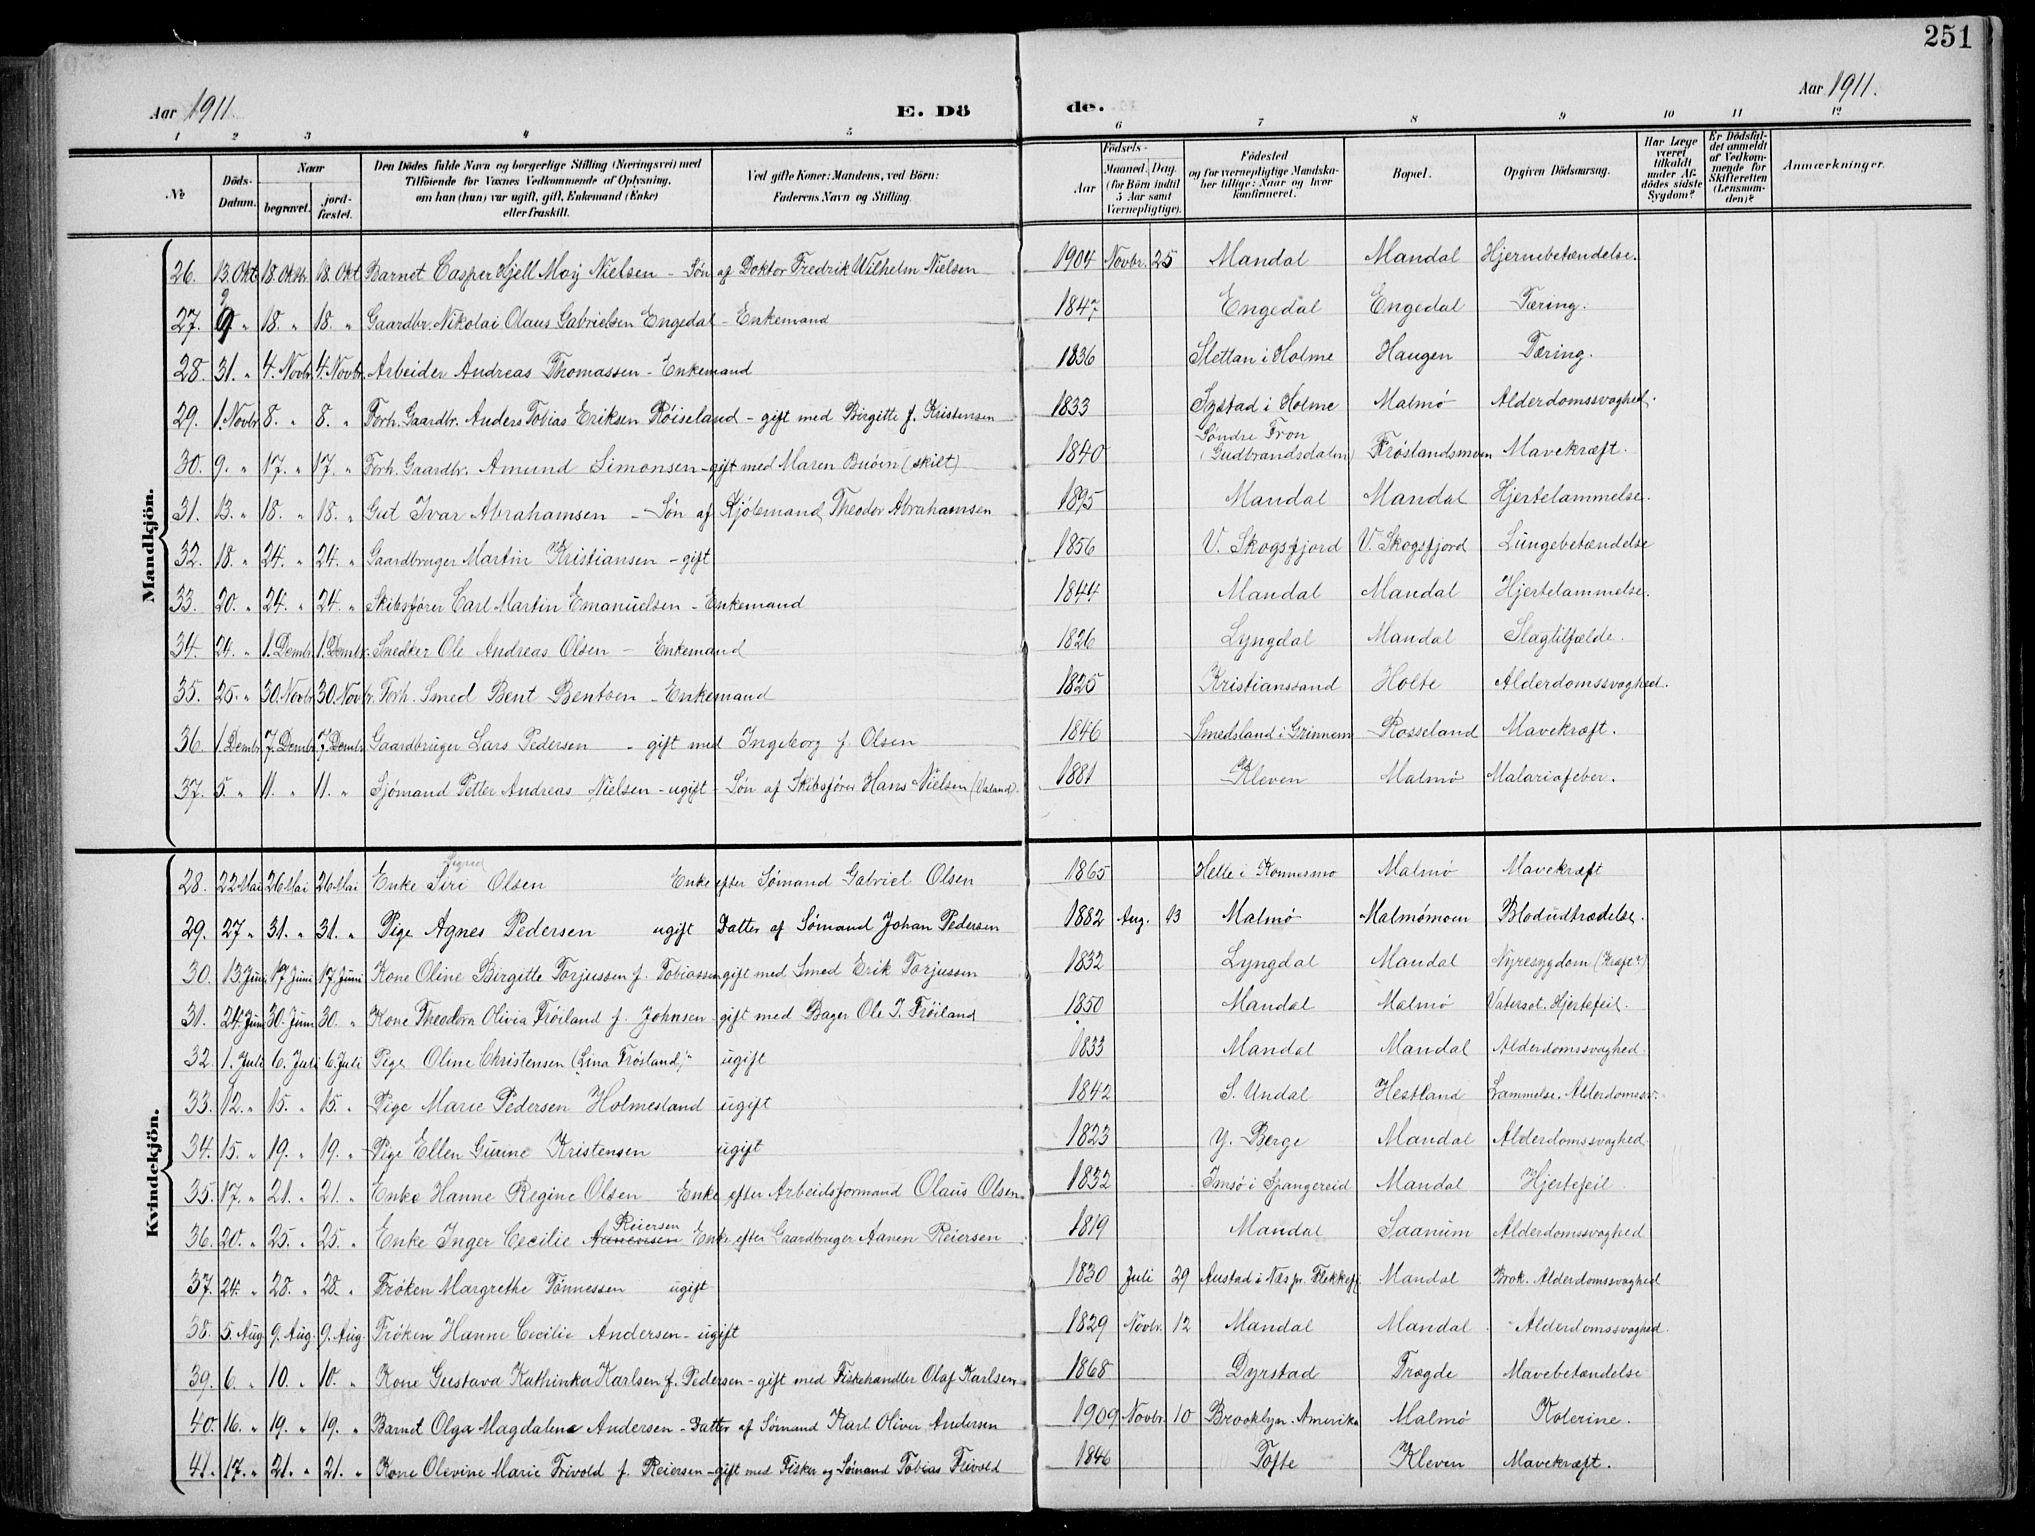 251
Aar 1911.
E. Dö
de.
Aar 1911.
1 2 3 4 5 6 7 8 9 10 11 12
№
Döds-Datum.
Naar
begravet.
jordfæstet.
Den Dödes fulde Navn og borgerlige Stilling (Næringsvei) med Tilföiende for Voxnes Vedkommende af Oplysning, om han (hun) var ugift, gift, Enkemand (Enke) eller fraskilt.
Ved gifte Koner: Mandens, ved Börn: Faderens Navn og Stilling.
Födsels-
Aar
Maaned.
Dag.
(for Börn indtil 5 Aar samt Værnepligtige).
Födested og for værnepligtige Mandskaber tillige: Naar og hvor konfirmeret.
Bopæl.
Opgiven Dödsaarsag.
Har Læge været tilkaldt under Afdödes sidste Sygdom?
Er Dödsfaldet anmeldt af Vedkommende for Skifteretten (Lensmanden)?
Anmærkninger.
Mandkjön.
26. 13. Oktb. 18. Oktbr. 18. Okt. Barnet Casper Kjell Moy Nielsen - Søn af Doktor Fredrik Wilhelm Nielsen 1904 Novbr. 25 Mandal Mandal Hjernebetændelse.
27. 9 " 18. " 18. " Gaardbr. Nikolai Olaus Gabrielsen Engedal - Enkemand 1847 Engedal Engedal Tæring.
28. 31. " 4. Novbr. 4. Novbr. Arbeider Andreas Thomassen - Enkemand 1836 Slettan i Holme Haugen Tæring.
29. 1. Novbr. 8. " 8. " Forh. Gaardbr. Anders Tobias Eriksen Røiseland - gift med Birgitte f. Kristensen 1833 Systad i Holme Malmø Alderdomssvaghed.
30. 9. " 17. " 17. " Forh. Gaardbr. Amund Simonsen - gift med Maren Buøen (skilt) 1840 Søndre Fron (Gudbrandsdalen) Frøslandsmoen Mavekræft.
31. 13. " 18. " 18. " Gut Ivar Abrahamsen - Søn af Kjøbmand Theodor Abrahamsen 1895 Mandal Mandal Hjertelammelse.
32. 18. " 24. " 24. " Gaardbruger Martin Kristiansen - gift 1856 V. Skogsfjord V. Skogsfjord Lungebetændelse
33. 20. " 24. " 24. " Skibsfører Carl Martin Emanuelsen - Enkemand 1844 Mandal Mandal Hjertelammelse.
34. 24. " 1. Dembr. 1. Dembr. Snedker Ole Andreas Olsen - Enkemand 1826 Lyngdal Mandal Slagtilfælde.
35. 25. " 30. Novbr. 30. Novbr. Forh. Smed Bent Bentsen - Enkemand 1825 Kristianssand Holte Alderdomssvaghed.
36. 1. Dembr. 7. Dembr. 7. Dembr. Gaardbruger Lars Pedersen - gift med Ingeborg f. Olsen 1846 Smedsland i Grinnem Rosseland Mavekræft.
37. 5. " 11. " 11. " Sjømand Petter Andreas Nielsen - ugift - Søn af Skibsfører Hans Nielsen (Valand). 1881 Kleven Malmø Malariafeber.
Kvindekjön.
28. 22 Mai 26 Mai 26 Mai Enke Siri Sigrid Olsen Enke efter Sømand Gabriel Olsen 1865 Helle i Konnesmo Malmø Mavekræft
29. 27 " 31. " 31. " Pige Agnes Pedersen ugift Datter af Sømand Johan Pedersen 1882 Aug. 13 Malmø Malmømoen Blodudtrædelse.
30. 13. Juni 17. Juni 17. Juni Kone Oline Birgitte Torjussen f. Tobiassen gift med Smed Erik Torjussen 1832 Lyngdal Mandal Nyresygdom (Kræft?)
31. 24. Juni 30. Juni 30. " Kone Theodora Olivia Frøiland f. Johnsen - gift med Bager Ole J. Frøiland 1850 Mandal Malmø Vatersot. Hjertefeil.
32 1. Juli 6. Juli 6 Juli Pige Oline Christensen (Lina Frøsland) ugift 1833 Mandal Mandal Alderdomssvaghed.
33. 12. " 15. " 15. " Pige Marie Pedersen Holmesland ugift 1842 S. Undal Hestland Lammelse. Alderdomssv.
34. 15. " 19. " 19. " Pige Ellen Gurine Kristensen ugift 1823 Y. Berge Mandal Alderdomssvaghed
35. 17. " 21. " 21. " Enke Hanne Regine Olsen Enke efter Arbeidsformand Olaus Olsen. 1832 Imsø i Spangereid Mandal Hjertefeil.
36. 20. " 25. " 25. " Enke Inger Cecilie Aanensen Reiersen Enke efter Gaardbruger Aanen Reiersen 1819 Mandal Saanum Alderdomssvaghed
37. 24. " 28. " 28. " Frøken Margrethe Tønnessen ugift 1830 Juli 29 Austad i Næs pr. Flekkef. Mandal Brok. Alderdomssvaghed
38. 5. Aug 9. Aug. 9. Aug. Frøken Hanne Cecilie Andersen - ugift 1829 Novbr. 12 Mandal Mandal Alderdomssvaghed.
39. 6. " 10. " 10. " Kone Gustava Kathinka Karlsen f. Pedersen - gift med Fiskehandler Olaf Karlsen 1868 Dyrstad Trægde Mavebetændelse
40. 16. " 19. " 19. " Barnet Olga Magdalene Andersen - Datter af Sømand Karl Oliver Andersen 1909 Novbr. 10 Brooklyn. Amerika Malmø Kolerine.
41. 17. " 21. " 21. " Kone Olevine Marie Frivold f. Reiersen - gift med Fisker og Sømand Tobias Frivold 1846 Tofte Kleven Mavekræft.